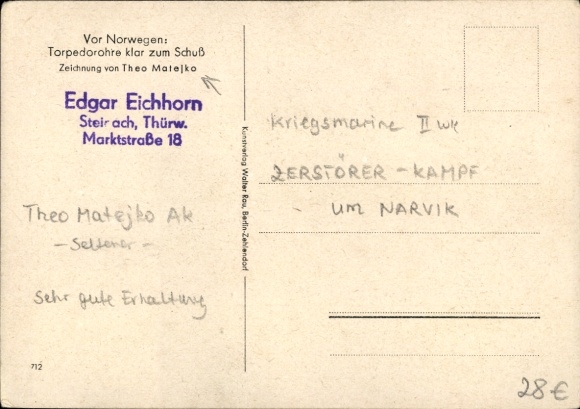 Vor Norwegen:
Torpedorohre klar zum Schuß
Zeichnung von Theo Matejko
Edgar Eichhorn
Steinach, Thürw.
Marktstraße 18
Theo Matejko Ak
- Seltener -
Sehr gute Erhaltung
712
Kunstverlag Walter Rau, Berlin-Zehlendorf
Kriegsmarine II WK
ZERSTÖRER - KAMPF
- UM NARVIK
28 €